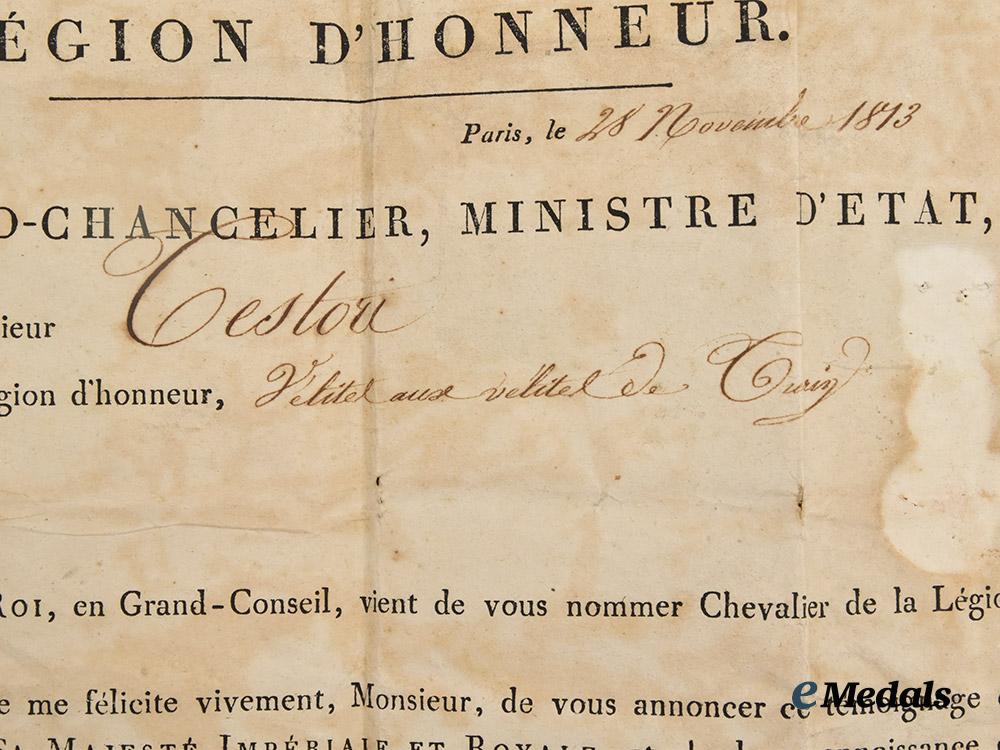 ÉGION D'HONNEUR.
Paris, le 28 Novembre 1813
D-CHANCELIER, MINISTRE D'ETAT,
ieur Testori
gion d'honneur, Vélites aux vélites de Turin
ROI, en Grand-Conseil, vient de vous nommer Chevalier de la Légio
e me félicite vivement, Monsieur, de vous annoncer ce témoignage
SA MAJESTÉ IMPÉRIALE ET ROYALE
eMedals